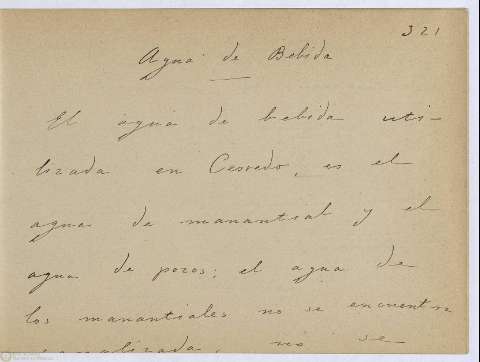 321
Agua de Bebida
El agua de bebida uti-
lizada en Cesvedo, es el
agua de manantial y el
agua de pozos; el agua de
los manantiales no se encuentra
canalizada, no se